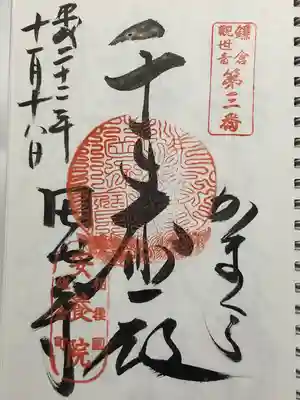 鎌倉
觀世音
第三番
かまくら
千手
殿
田代寺
安養院
平成二十二年
十一月十八日